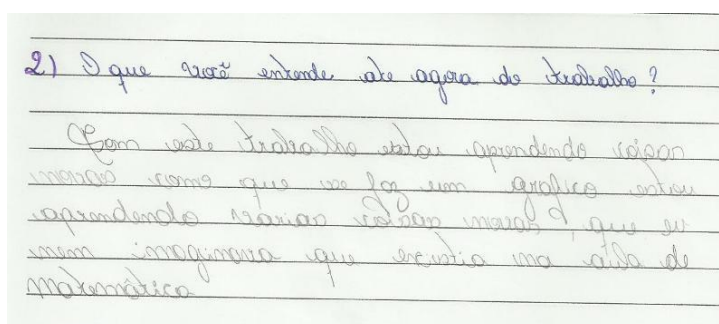 2) O que você entende ate agora do trabalho?
Com este trabalho estou aprendendo coisas
novas como que se faz um grafico estou
aprendendo varias coisas novas, que eu
nem imaginava que existia na aula de
matemática